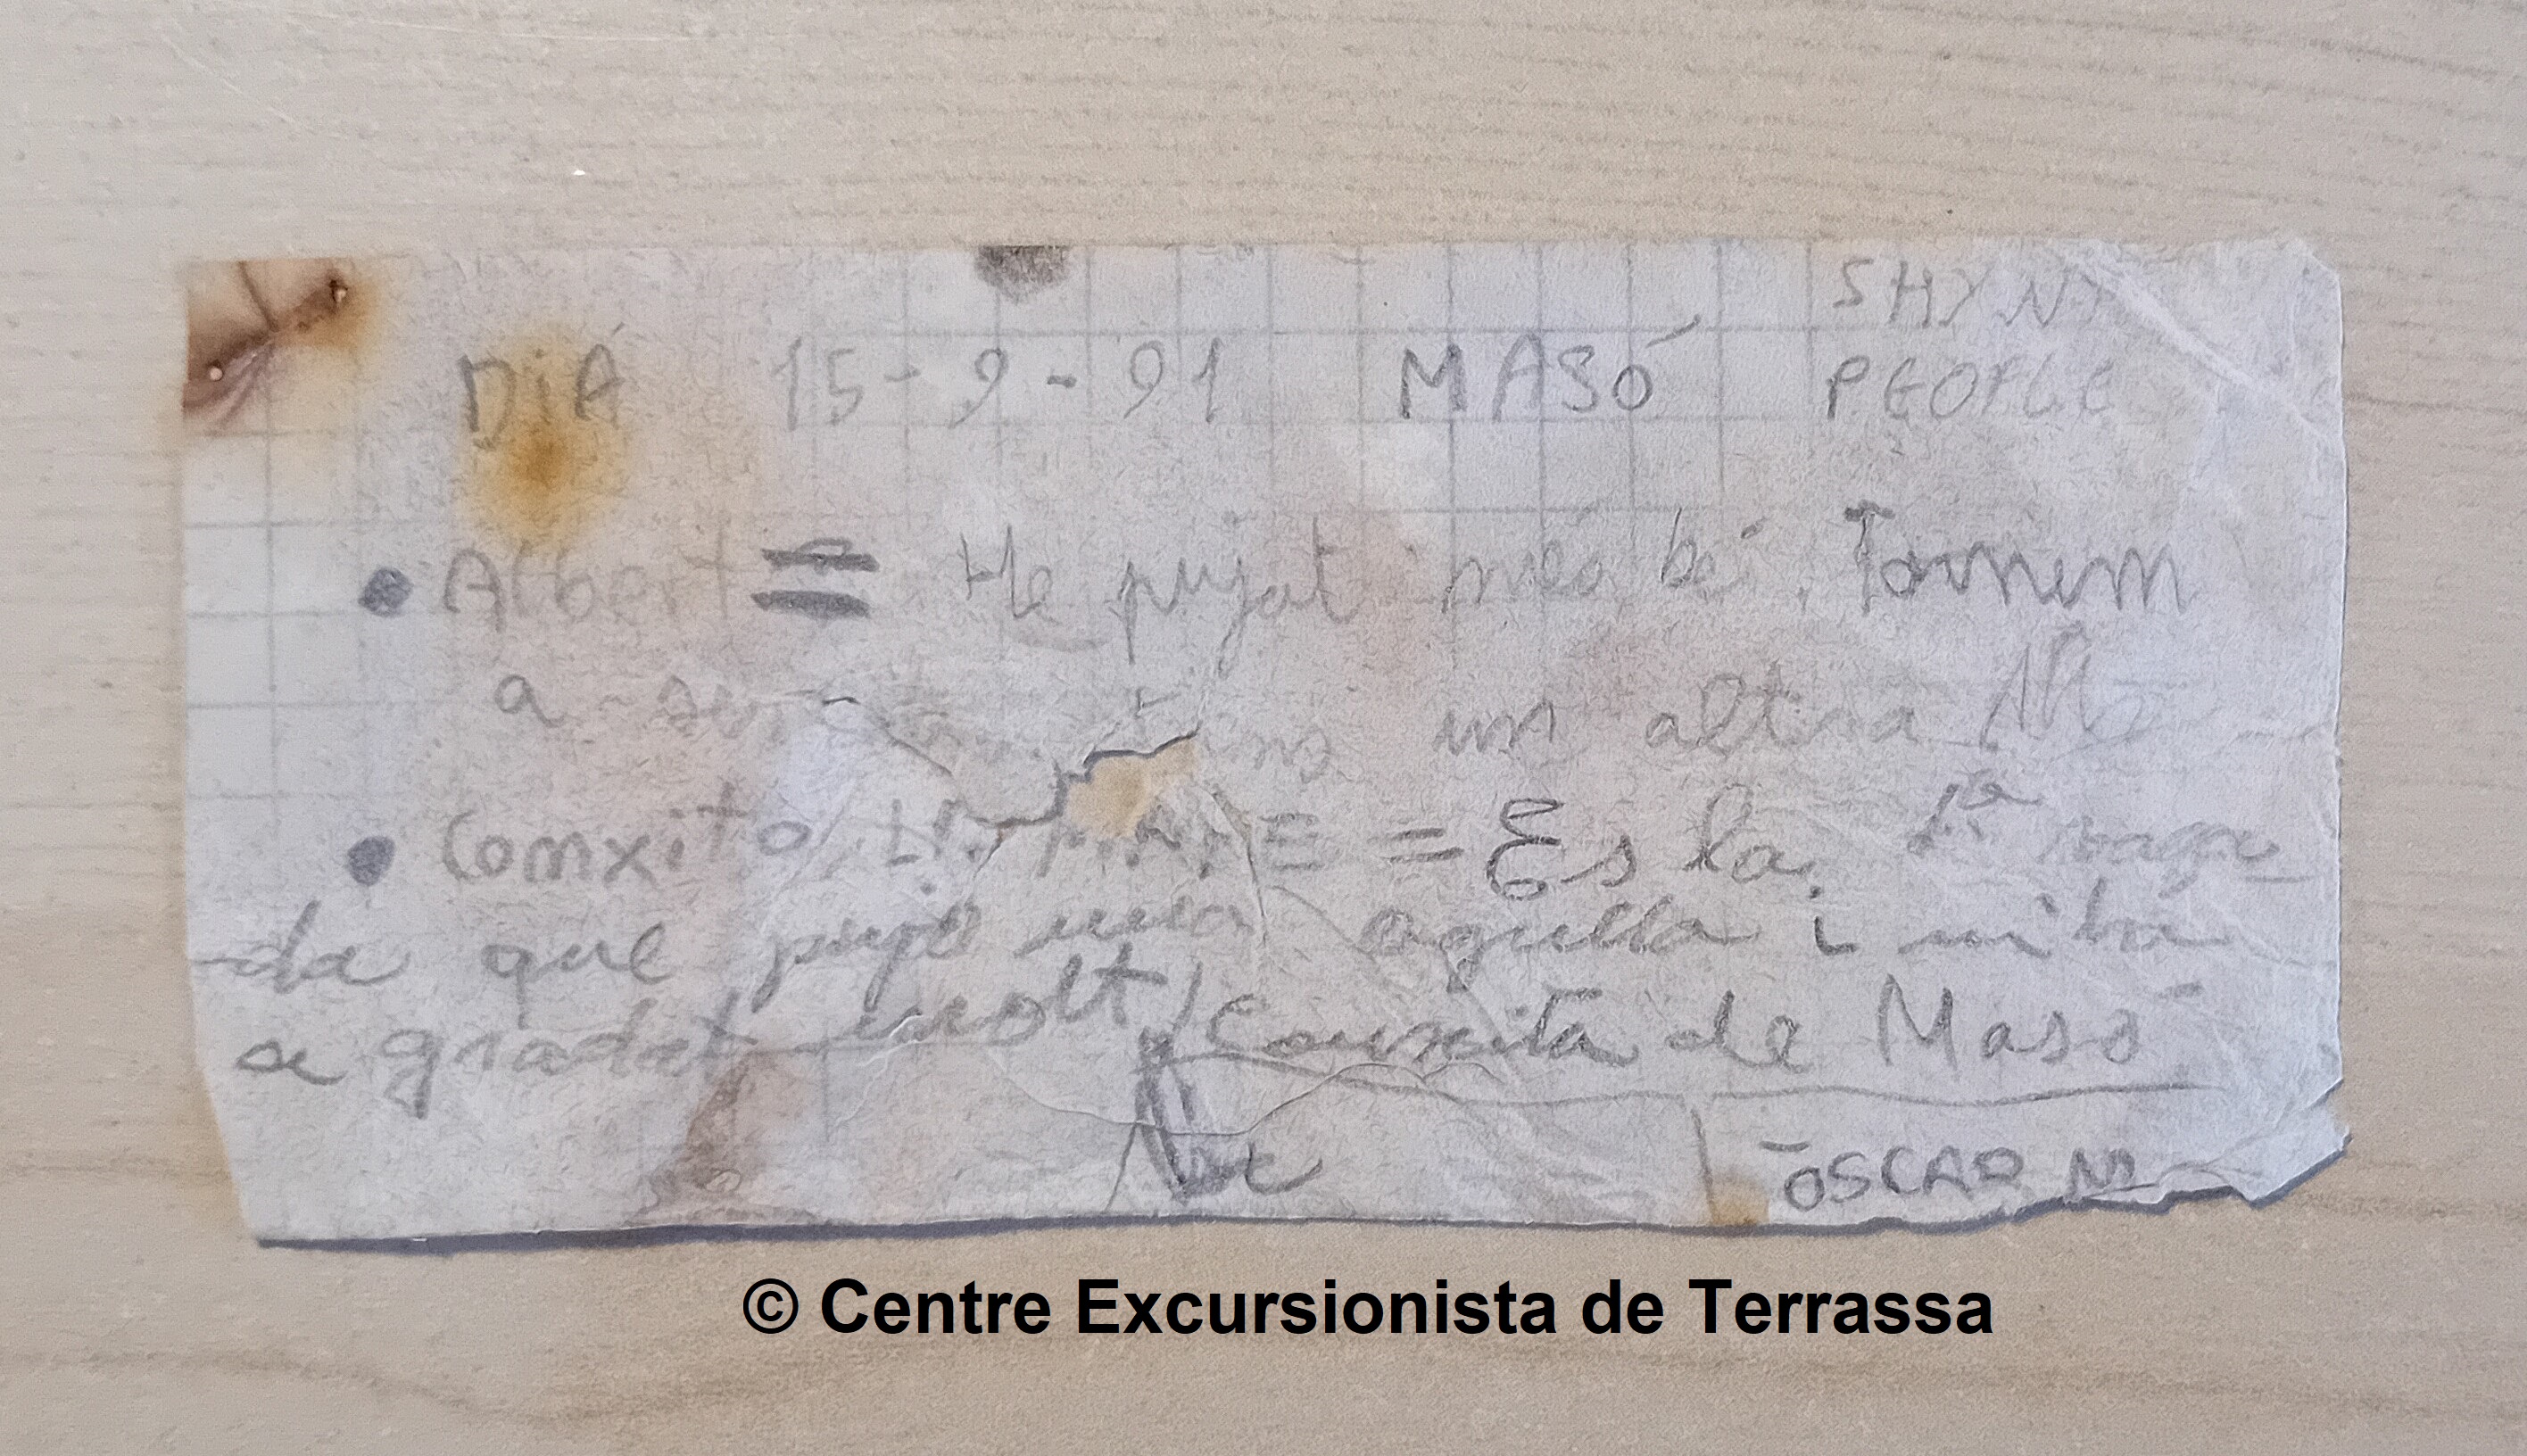 SHYNY
DIÁ 15-9-91 MASÓ PEOPLE
• Albert = He pujat més bé. Tornem
a un altra
• Comxita LA MARE = Es la 1ª vaga
da que pujo una agulla i m'ha
a gradat molt / Counxita de Masó
OSCAR
© Centre Excursionista de Terrassa